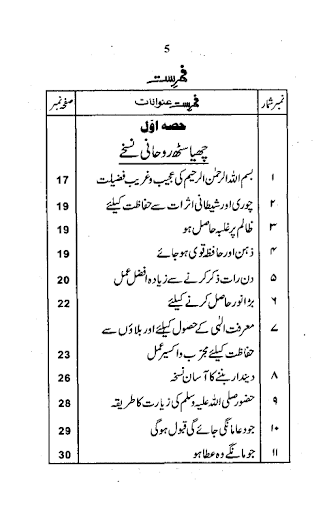 5
فہرست
نمبر شمار فہرست عنوانات صفحہ نمبر
حصہ اوّل
چھیاسٹھ روحانی نسخے
۱ بسم اللہ الرحمٰن الرحیم کی عجیب و غریب فضیلت 17
۲ چوری اور شیطانی اثرات سے حفاظت کیلئے 19
۳ ظالم پر غلبہ حاصل ہو 19
۴ ذہن اور حافظہ قوی ہو جائے 19
۵ دن رات ذکر کرنے سے زیادہ افضل عمل 20
۶ بڑا نور حاصل کرنے کیلئے 22
۷ معرفت الٰہی کے حصول کیلئے اور بلاؤں سے
حفاظت کیلئے مجرّب و اکسیر عمل 23
۸ دیندار بننے کا آسان نسخہ 26
۹ حضور صلی اللہ علیہ وسلم کی زیارت کا طریقہ 28
۱۰ جو دعا مانگی جائے گی قبول ہوگی 29
۱۱ جو مانگے وہ عطا ہو 30